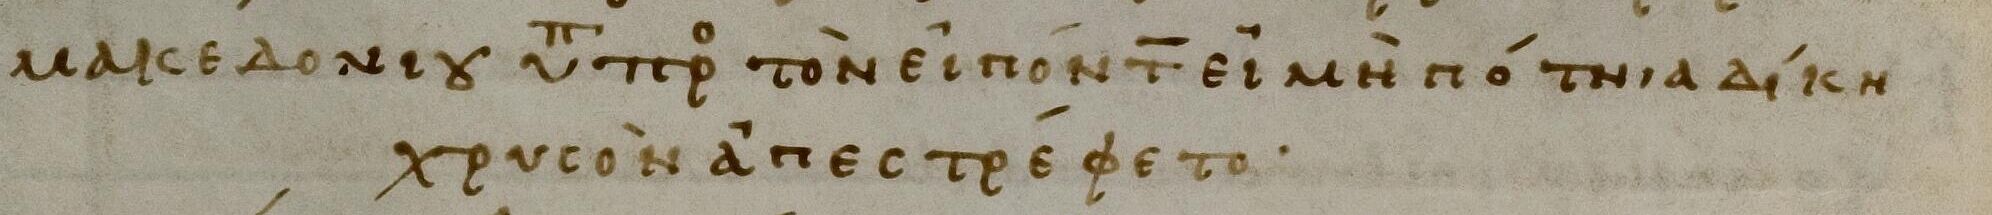 μακεδονίου ὑπ προ τὸν εἰπόντ εἰ μὴ πότνια δίκη
χρυσὸν ἀπεστρέφετο·